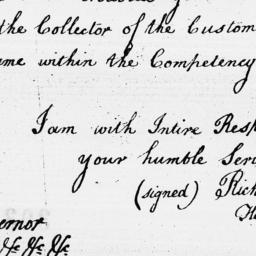 the Collector of the Custom
ame within the Competency
I am with Intire Resp
your humble Ser
(signed) Rich
ernor
&c &c &c